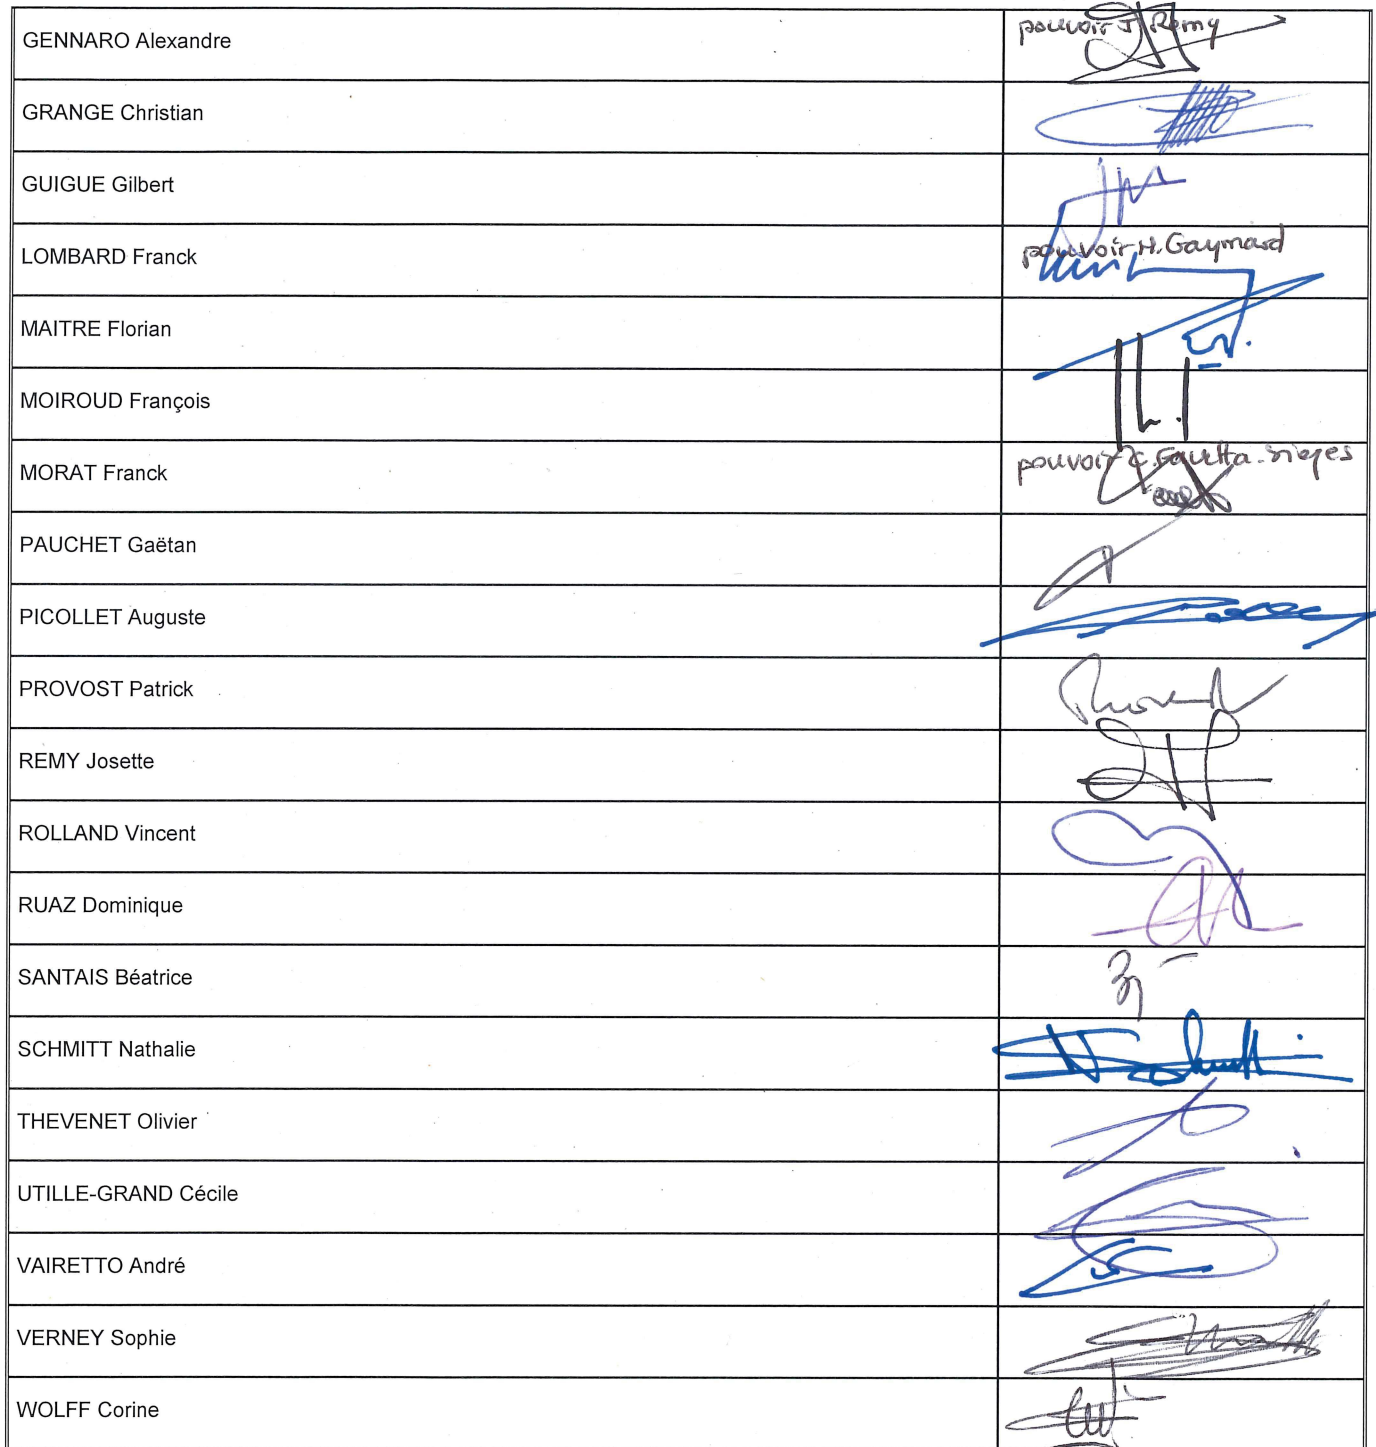 GENNARO Alexandre
pouvoir J. Remy
GRANGE Christian
GUIGUE Gilbert
LOMBARD Franck
pouvoir H. Gaymard
MAITRE Florian
MOIROUD François
MORAT Franck
pouvoir
PAUCHET Gaëtan
PICOLLET Auguste
PROVOST Patrick
REMY Josette
ROLLAND Vincent
RUAZ Dominique
SANTAIS Béatrice
SCHMITT Nathalie
THEVENET Olivier
UTILLE-GRAND Cécile
VAIRETTO André
VERNEY Sophie
WOLFF Corine